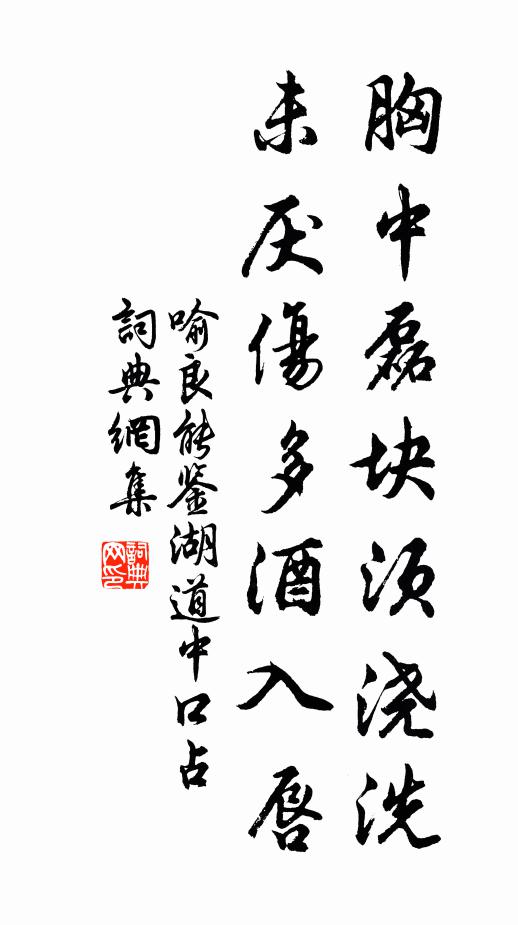 胸中磊块须浇洗
未厌傷多酒入唇
喻良能鉴湖道中口占
詞典網集
詞典网印